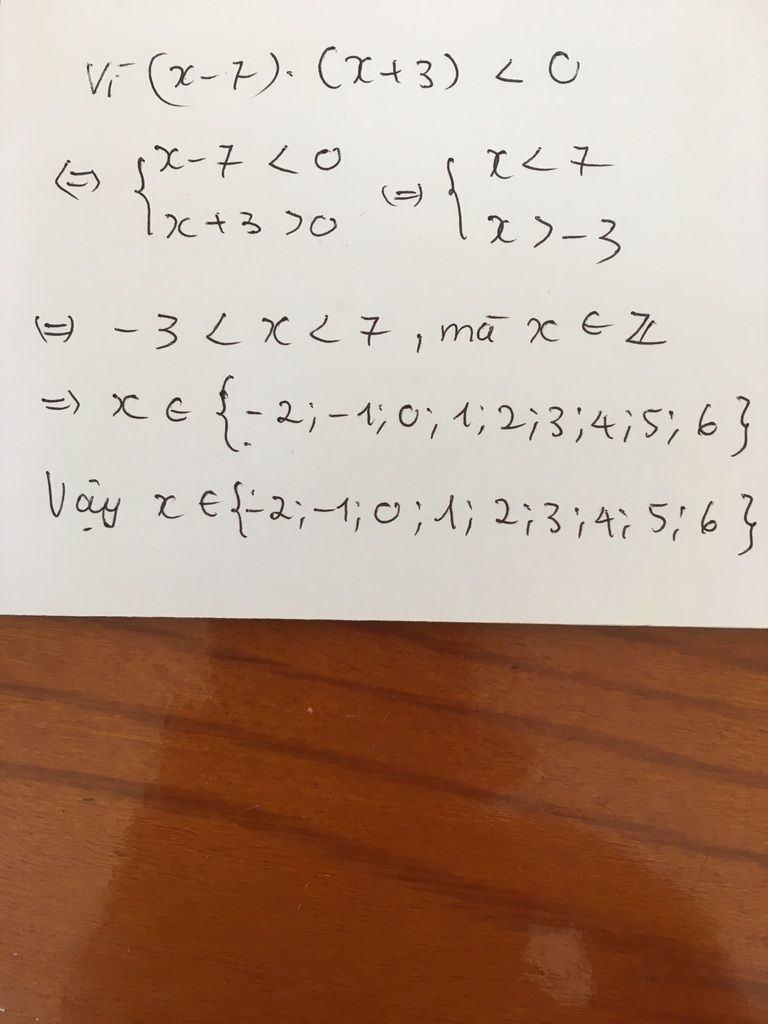 Vì (x-7). (x+3) < 0
<=> { x-7 < 0 <=> { x < 7
x+3 >0 x > -3
<=> -3 < x < 7, mà x ∈ ℤ
=> x ∈ {-2; -1; 0; 1; 2; 3; 4; 5; 6}
Vậy x ∈ {-2; -1; 0; 1; 2; 3; 4; 5; 6}